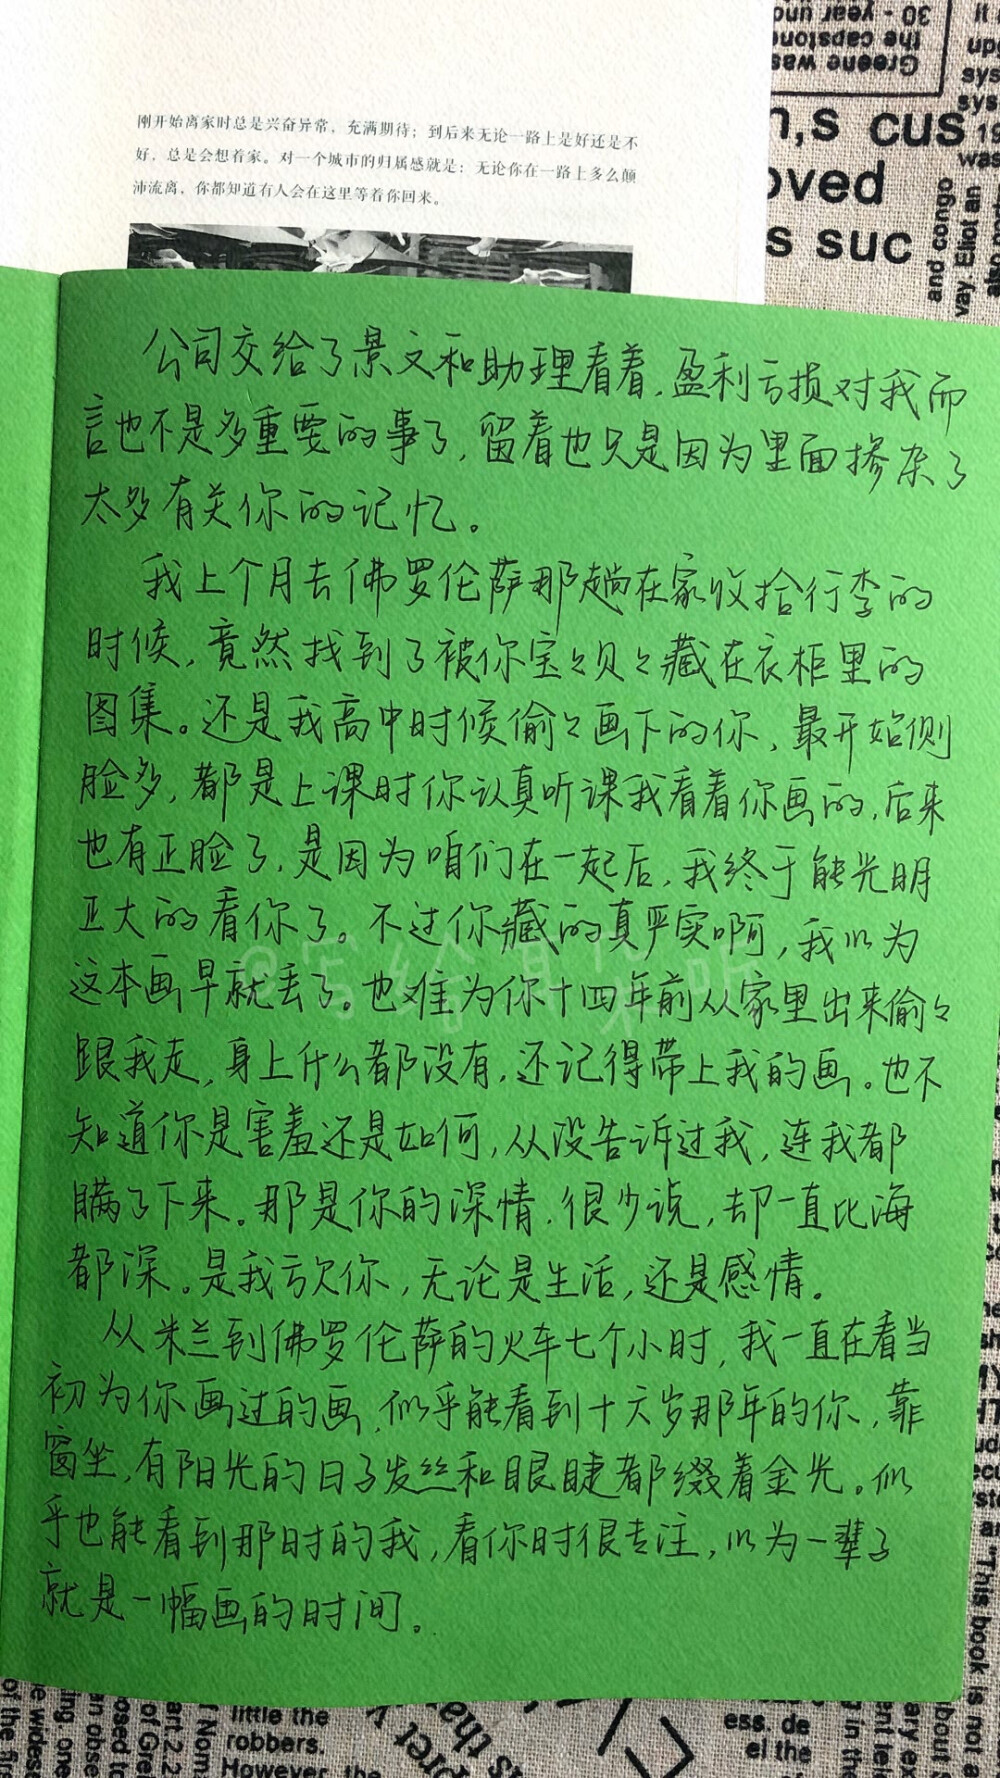 刚开始离家时总是兴奋异常，充满期待；到后来无论一路上是好还是不
好，总是会想着家。对一个城市的归属感就是：无论你在一路上多么颠
沛流离，你都知道有人会在这里等着你回来。
30 - year und
the capstone
Greene was
n,s cus
oved
s suc
and congo
vay. Eliot an
公司交给了景文和助理看着，盈利亏损对我而
言也不是多重要的事了，留着也只是因为里面掺杂了
太多有关你的记忆。
我上个月去佛罗伦萨那趟在家收拾行李的
时候，竟然找到了被你宝々贝々藏在衣柜里的
图集。还是我高中时候偷々画下的你，最开始侧
脸多，都是上课时你认真听课我看着你画的，后来
也有正脸了，是因为咱们在一起后，我终于能光明
正大的看你了。不过你藏的真严实啊，我以为
这本画早就丢了。也难为你十四年前从家里出来偷々
跟我走，身上什么都没有，还记得带上我的画。也不
知道你是害羞还是如何，从没告诉过我，连我都
瞒了下来。那是你的深情，很少说，却一直比海
都深。是我亏欠你，无论是生活，还是感情。
从米兰到佛罗伦萨的火车七个小时，我一直在看当
初为你画过的画，似乎能看到十六岁那年的你，靠
窗坐，有阳光的日子发丝和眼睫都缀着金光。似
乎也能看到那时的我，看你时很专注，以为一辈子
就是一幅画的时间。
little the
robbers.
However, the
ess. de
el the
"This book is not a